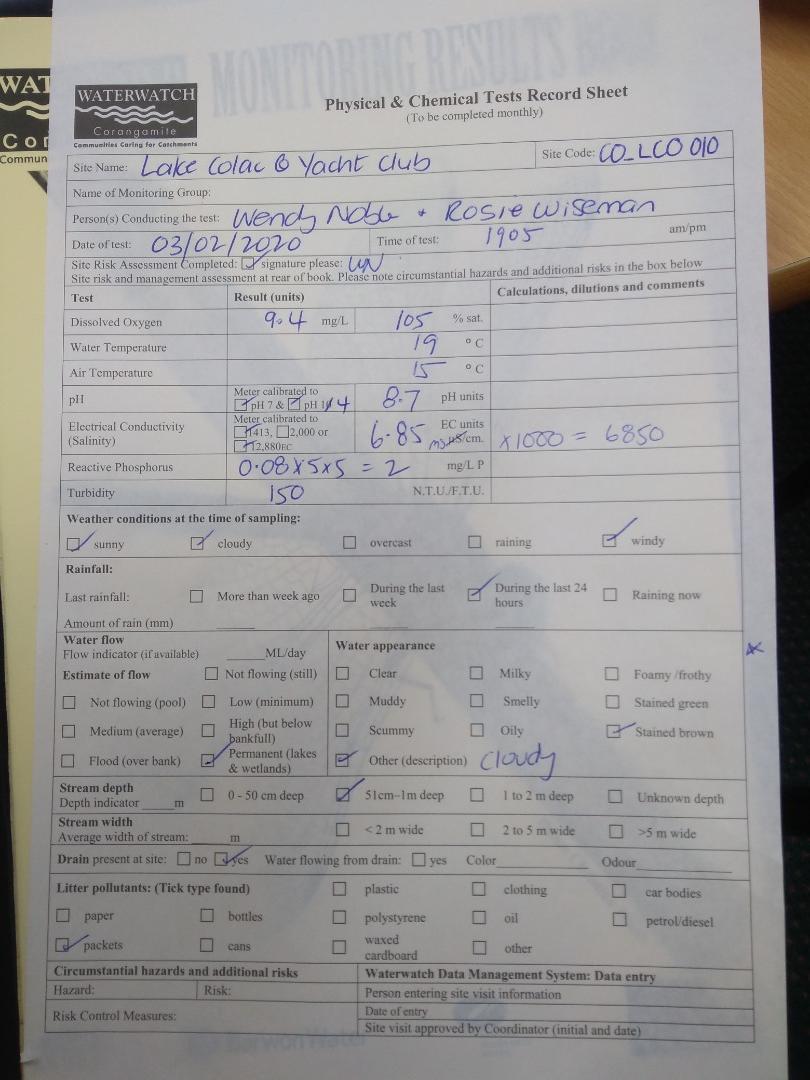 MONITORING RESULTS
WAT
Cor
Commun
WATERWATCH
Corangamite
Communities Caring for Catchments
Physical & Chemical Tests Record Sheet
(To be completed monthly)
Site Name: Lake Colac @ Yacht Club Site Code: CO_LCO 010
Name of Monitoring Group:
Person(s) Conducting the test: Wendy Noble + Rosie Wiseman
Date of test: 03/02/2020 Time of test: 1905 am/pm
Site Risk Assessment Completed: signature please: WN
Site risk and management assessment at rear of book. Please note circumstantial hazards and additional risks in the box below
Test Result (units) Calculations, dilutions and comments
Dissolved Oxygen 9.4 mg/L 105 % sat.
Water Temperature 19 °C
Air Temperature 15 °C
pH Meter calibrated to
pH 7 & pH 4 8.7 pH units
Electrical Conductivity Meter calibrated to EC units
(Salinity) 1413, 2,000 or 6.85 ms µS/cm. x1000 = 6850
12,880EC
Reactive Phosphorus 0.08x5x5 = 2 mg/L P
Turbidity 150 N.T.U./F.T.U.
Weather conditions at the time of sampling:
sunny cloudy overcast raining windy
Rainfall:
Last rainfall: More than week ago During the last week During the last 24 hours Raining now
Amount of rain (mm)
Water flow Water appearance
Flow indicator (if available) ML/day
Estimate of flow Not flowing (still) Clear Milky Foamy /frothy
Not flowing (pool) Low (minimum) Muddy Smelly Stained green
Medium (average) High (but below bankfull) Scummy Oily Stained brown
Flood (over bank) Permanent (lakes & wetlands) Other (description) Cloudy
Stream depth
Depth indicator m 0 - 50 cm deep 51cm–1m deep 1 to 2 m deep Unknown depth
Stream width
Average width of stream: m < 2 m wide 2 to 5 m wide >5 m wide
Drain present at site: no yes Water flowing from drain: yes Color Odour
Litter pollutants: (Tick type found) plastic clothing car bodies
paper bottles polystyrene oil petrol/diesel
packets cans waxed cardboard other
Circumstantial hazards and additional risks Waterwatch Data Management System: Data entry
Hazard: Risk: Person entering site visit information
Risk Control Measures: Date of entry
Site visit approved by Coordinator (initial and date)
Barwon Water